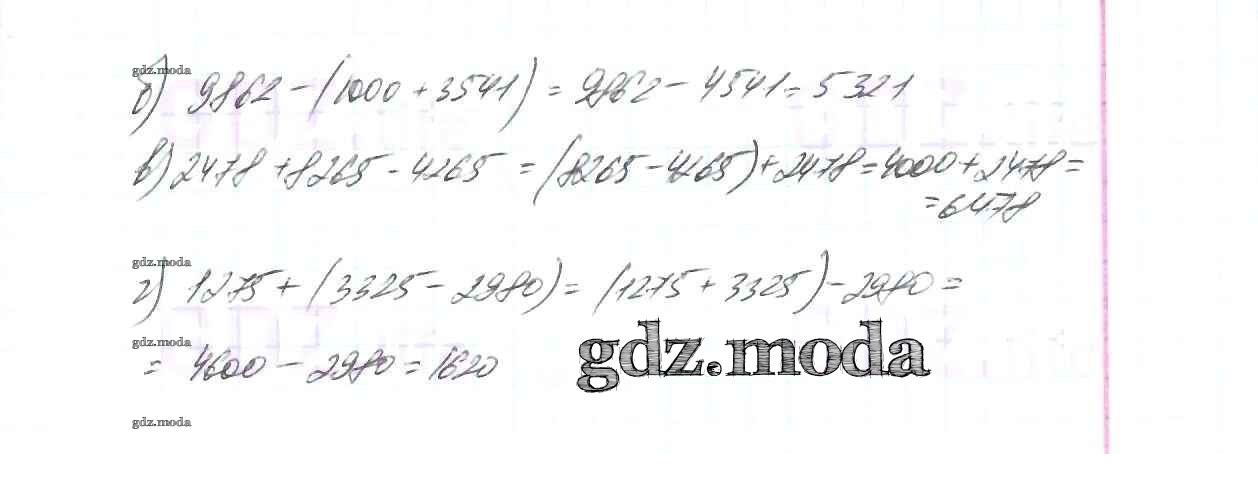 gdz.moda
б) 9862 - (1000 + 3541) = 9862 - 4541 = 5321
в) 2478 + 8265 - 4265 = (8265 - 4265) + 2478 = 4000 + 2478 =
= 6478
gdz.moda
г) 1275 + (3325 - 2980) = (1275 + 3325) - 2980 =
gdz.moda
= 4600 - 2980 = 1620
gdz.moda
gdz.moda